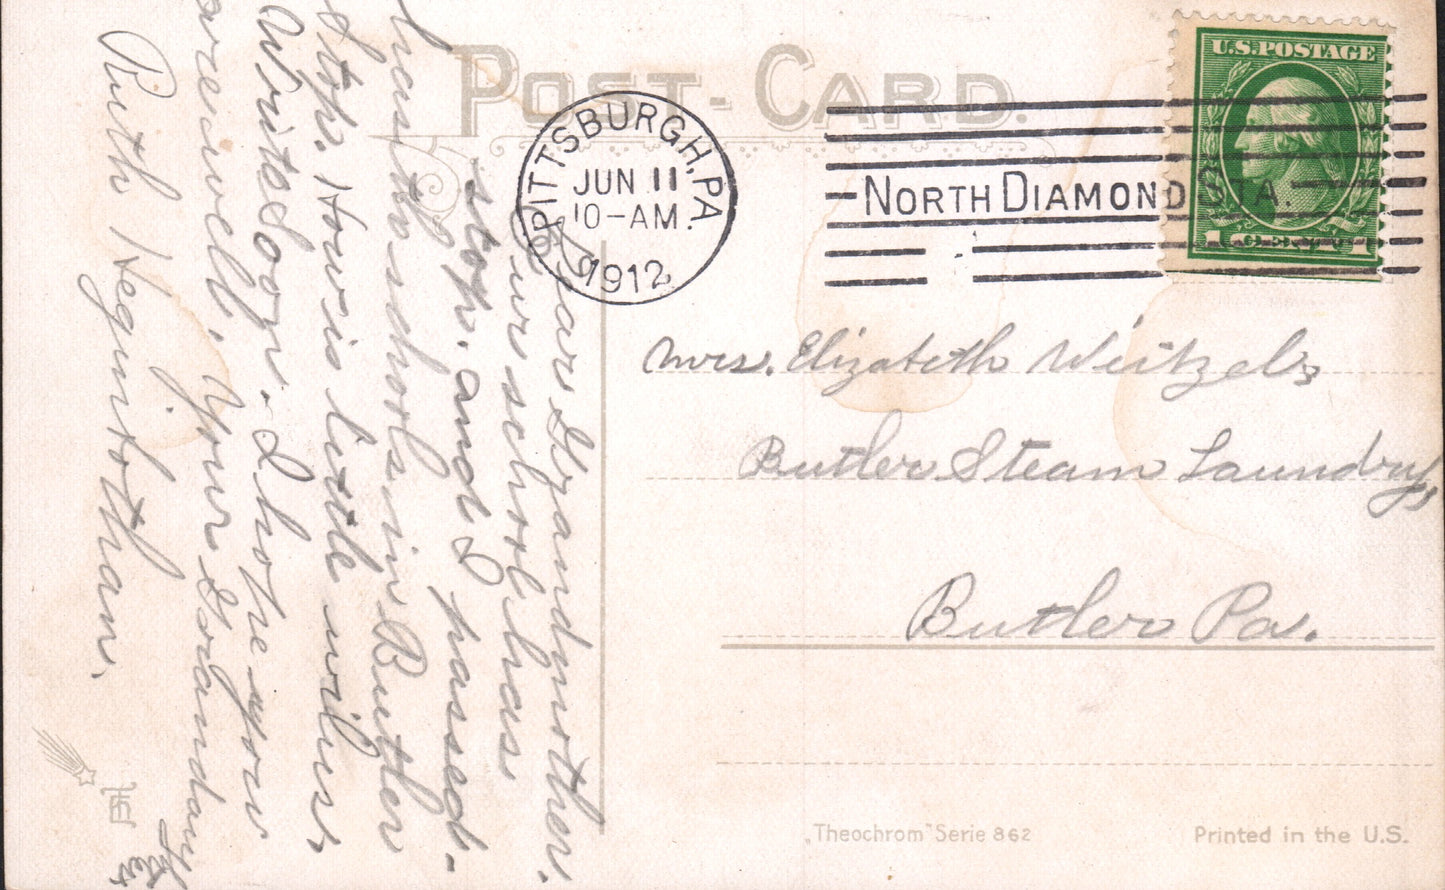 POST-CARD.
PITTSBURGH, PA
JUN 11
10-AM.
1912
NORTH DIAMOND STA.
U.S. POSTAGE
1 1
Mrs. Elizabeth Weitzel,
Butler Steam Laundry,
Butler Pa.
Dear Grandmother.
Our school has
stop. and I passed-
has the schools in Butler
stop. How is little wilus
Write soon. I hope your
are well. Your Grandaug
ter
Ruth Heginbotham.
„Theochrom" Serie 862
Printed in the U.S.